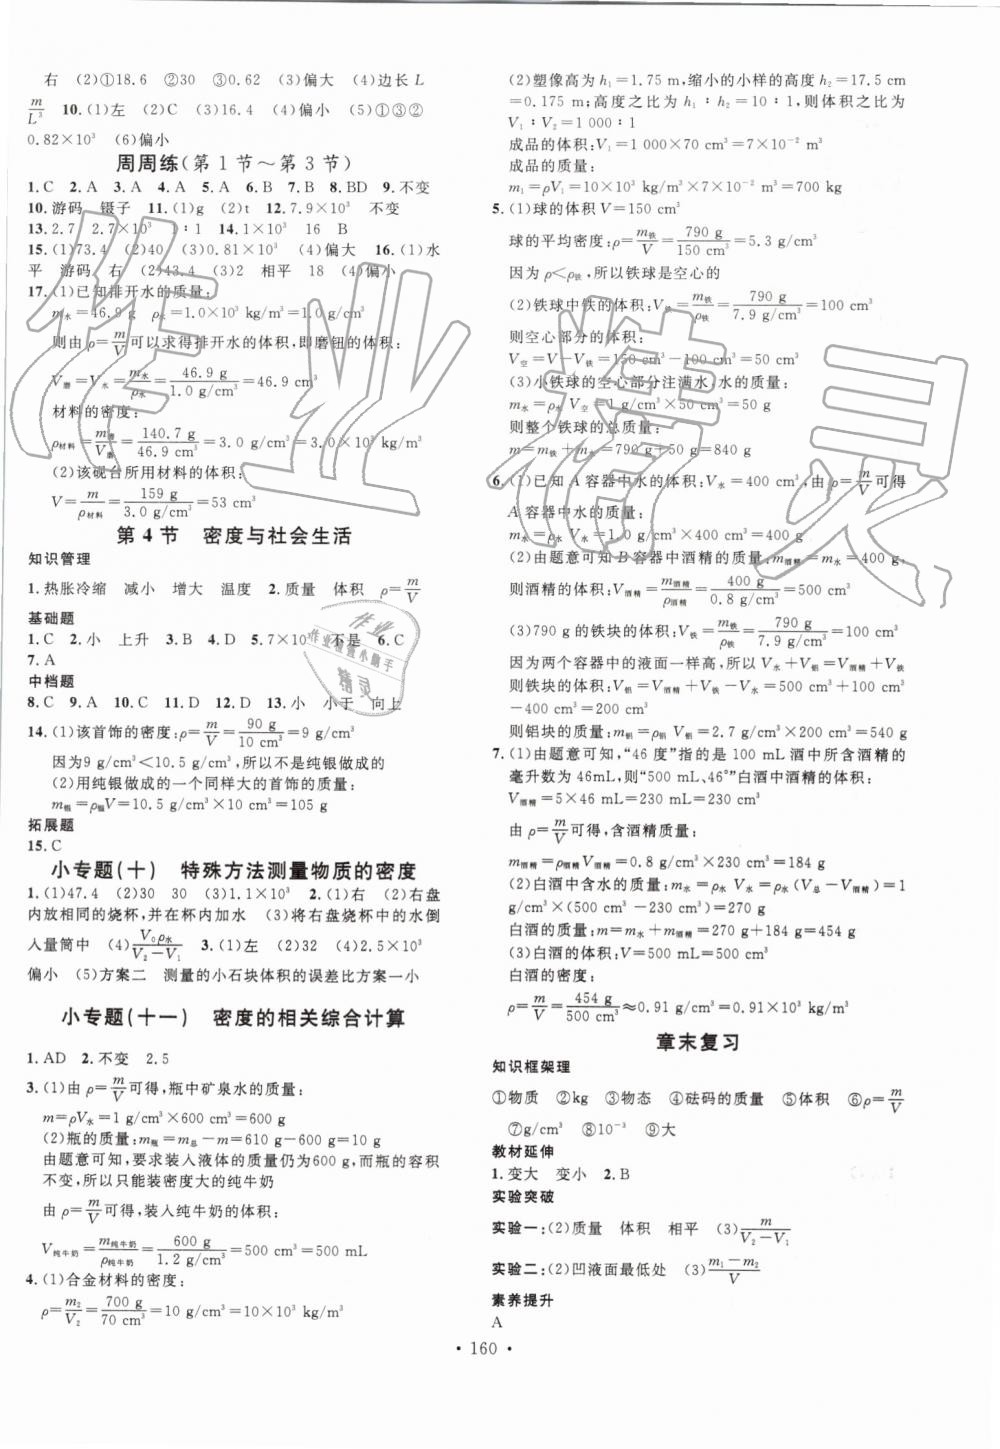 右 (2)①18.6 ②30 ③0.62 (3)偏大 (4)边长 L
m/L³ 10.(1)左 (2)C (3)16.4 (4)偏小 (5)①③②
0.82×10³ (6)偏小
周周练(第1节～第3节)
1.C 2.A 3.A 4.A 5.A 6.B 7.B 8.BD 9.不变
10.游码 镊子 11.(1)g (2)t 12.7.9×10³ 不变
13.2.7 2.7×10³ ∶1 14.1×10³ 16 B
15.(1)73.4 (2)40 (3)0.81×10³ (4)偏大 16.(1)水
平 游码 右 (2)43.4 (3)2 相平 18 (4)偏小
17.(1)已知排开水的质量:
m水=46.9 g ρ水=1.0×10³ kg/m³=1.0 g/cm³
则由ρ=m/V可以求得排开水的体积,即磨钮的体积:
V磨=V水=m水/ρ水=46.9 g/1.0 g/cm³=46.9 cm³
材料的密度:
ρ材料=m磨/V磨=140.7 g/46.9 cm³=3.0 g/cm³=3.0×10³ kg/m³
(2)该砚台所用材料的体积:
V=m/ρ材料=159 g/3.0 g/cm³=53 cm³
第4节 密度与社会生活
知识管理
1.热胀冷缩 减小 增大 温度 2.质量 体积 ρ=m/V
基础题
1.C 2.小 上升 3.B 4.D 5.7×10³ 不是 6.C
7.A
中档题
8.C 9.A 10.C 11.D 12.D 13.小 小于 向上
14.(1)该首饰的密度:ρ=m/V=90 g/10 cm³=9 g/cm³
因为9 g/cm³<10.5 g/cm³,所以不是纯银做成的
(2)用纯银做成的一个同样大的首饰的质量:
m银=ρ银V=10.5 g/cm³×10 cm³=105 g
拓展题
15.C
小专题(十) 特殊方法测量物质的密度
1.(1)47.4 (2)30 30 (3)1.1×10³ 2.(1)右 (2)右盘
内放相同的烧杯,并在杯内加水 (3)将右盘烧杯中的水倒
人量筒中 (4)V₀ρ水/V₂−V₁ 3.(1)左 (2)32 (4)2.5×10³
偏小 (5)方案二 测量的小石块体积的误差比方案一小
小专题(十一) 密度的相关综合计算
1.AD 2.不变 2.5
3.(1)由ρ=m/V可得,瓶中矿泉水的质量:
m=ρV水=1 g/cm³×600 cm³=600 g
(2)瓶的质量:m瓶=m总−m=610 g−600 g=10 g
由题意可知,要求装入液体的质量仍为600 g,而瓶的容积
不变,所以只能装密度大的纯牛奶
由ρ=m/V可得,装入纯牛奶的体积:
V纯牛奶=m纯牛奶/ρ纯牛奶=600 g/1.2 g/cm³=500 cm³=500 mL
4.(1)合金材料的密度:
ρ=m₂/V₂=700 g/70 cm³=10 g/cm³=10×10³ kg/m³
(2)塑像高为h₁=1.75 m,缩小的小样的高度h₂=17.5 cm
=0.175 m;高度之比为h₁∶h₂=10∶1,则体积之比为
V₁∶V₂=1 000∶1
成品的体积:V₁=1 000×70 cm³=7×10⁻² m³
成品的质量:
m₁=ρV₁=10×10³ kg/m³×7×10⁻² m³=700 kg
5.(1)球的体积V=150 cm³
球的平均密度:ρ=m铁/V=790 g/150 cm³=5.3 g/cm³
因为ρ<ρ铁,所以铁球是空心的
(2)铁球中铁的体积:V铁=m铁/ρ铁=790 g/7.9 g/cm³=100 cm³
则空心部分的体积:
V空=V−V铁=150 cm³−100 cm³=50 cm³
(3)小铁球的空心部分注满水,水的质量:
m水=ρ水 V空=1 g/cm³×50 cm³=50 g
则整个铁球的总质量:
m=m铁+m水=790 g+50 g=840 g
6.(1)已知A容器中水的体积:V水=400 cm³,由ρ=m/V可得
A容器中水的质量:
m水=ρ水V水=1.0 g/cm³×400 cm³=400 g
(2)由题意可知B容器中酒精的质量:m酒精=m水=400 g,
则酒精的体积:V酒精=m酒精/ρ酒精=400 g/0.8 g/cm³=500 cm³
(3)790 g的铁块的体积:V铁=m铁/ρ铁=790 g/7.9 g/cm³=100 cm³
因为两个容器中的液面一样高,所以V水+V铝=V酒精+V铁
则铝块的体积:V铝=V酒精+V铁−V水=500 cm³+100 cm³−
400 cm³=200 cm³
则铝块的质量:m铝=ρ铝 V铝=2.7 g/cm³×200 cm³=540 g
7.(1)由题意可知,“46度”指的是100 mL酒中所含酒精的
毫升数为46mL,则“500 mL,46°”白酒中酒精的体积:
V酒精=5×46 mL=230 mL=230 cm³
由ρ=m/V可得,含酒精质量:
m酒精=ρ酒精V酒精=0.8 g/cm³×230 cm³=184 g
(2)白酒中含水的质量:m水=ρ水 V水=ρ水(V总−V酒精)=1
g/cm³×(500 cm³−230 cm³)=270 g
白酒的质量:m=m水+m酒精=270 g+184 g=454 g
(3)白酒的体积:V=500 mL=500 cm³
白酒的密度:
ρ=m/V=454 g/500 cm³≈0.91 g/cm³=0.91×10³ kg/m³
章末复习
知识框架理
①物质 ②kg ③物态 ④砝码的质量 ⑤体积 ⑥ρ=m/V
⑦g/cm³ ⑧10⁻³ ⑨大
教材延伸
1.变大 变小 2.B
实验突破
实验一:(2)质量 体积 相平 (3)m/V₂−V₁
实验二:(2)凹液面最低处 (3)m₁−m₂/V
素养提升
A
· 160 ·
作业精灵
作业
作业检查小助手
精灵